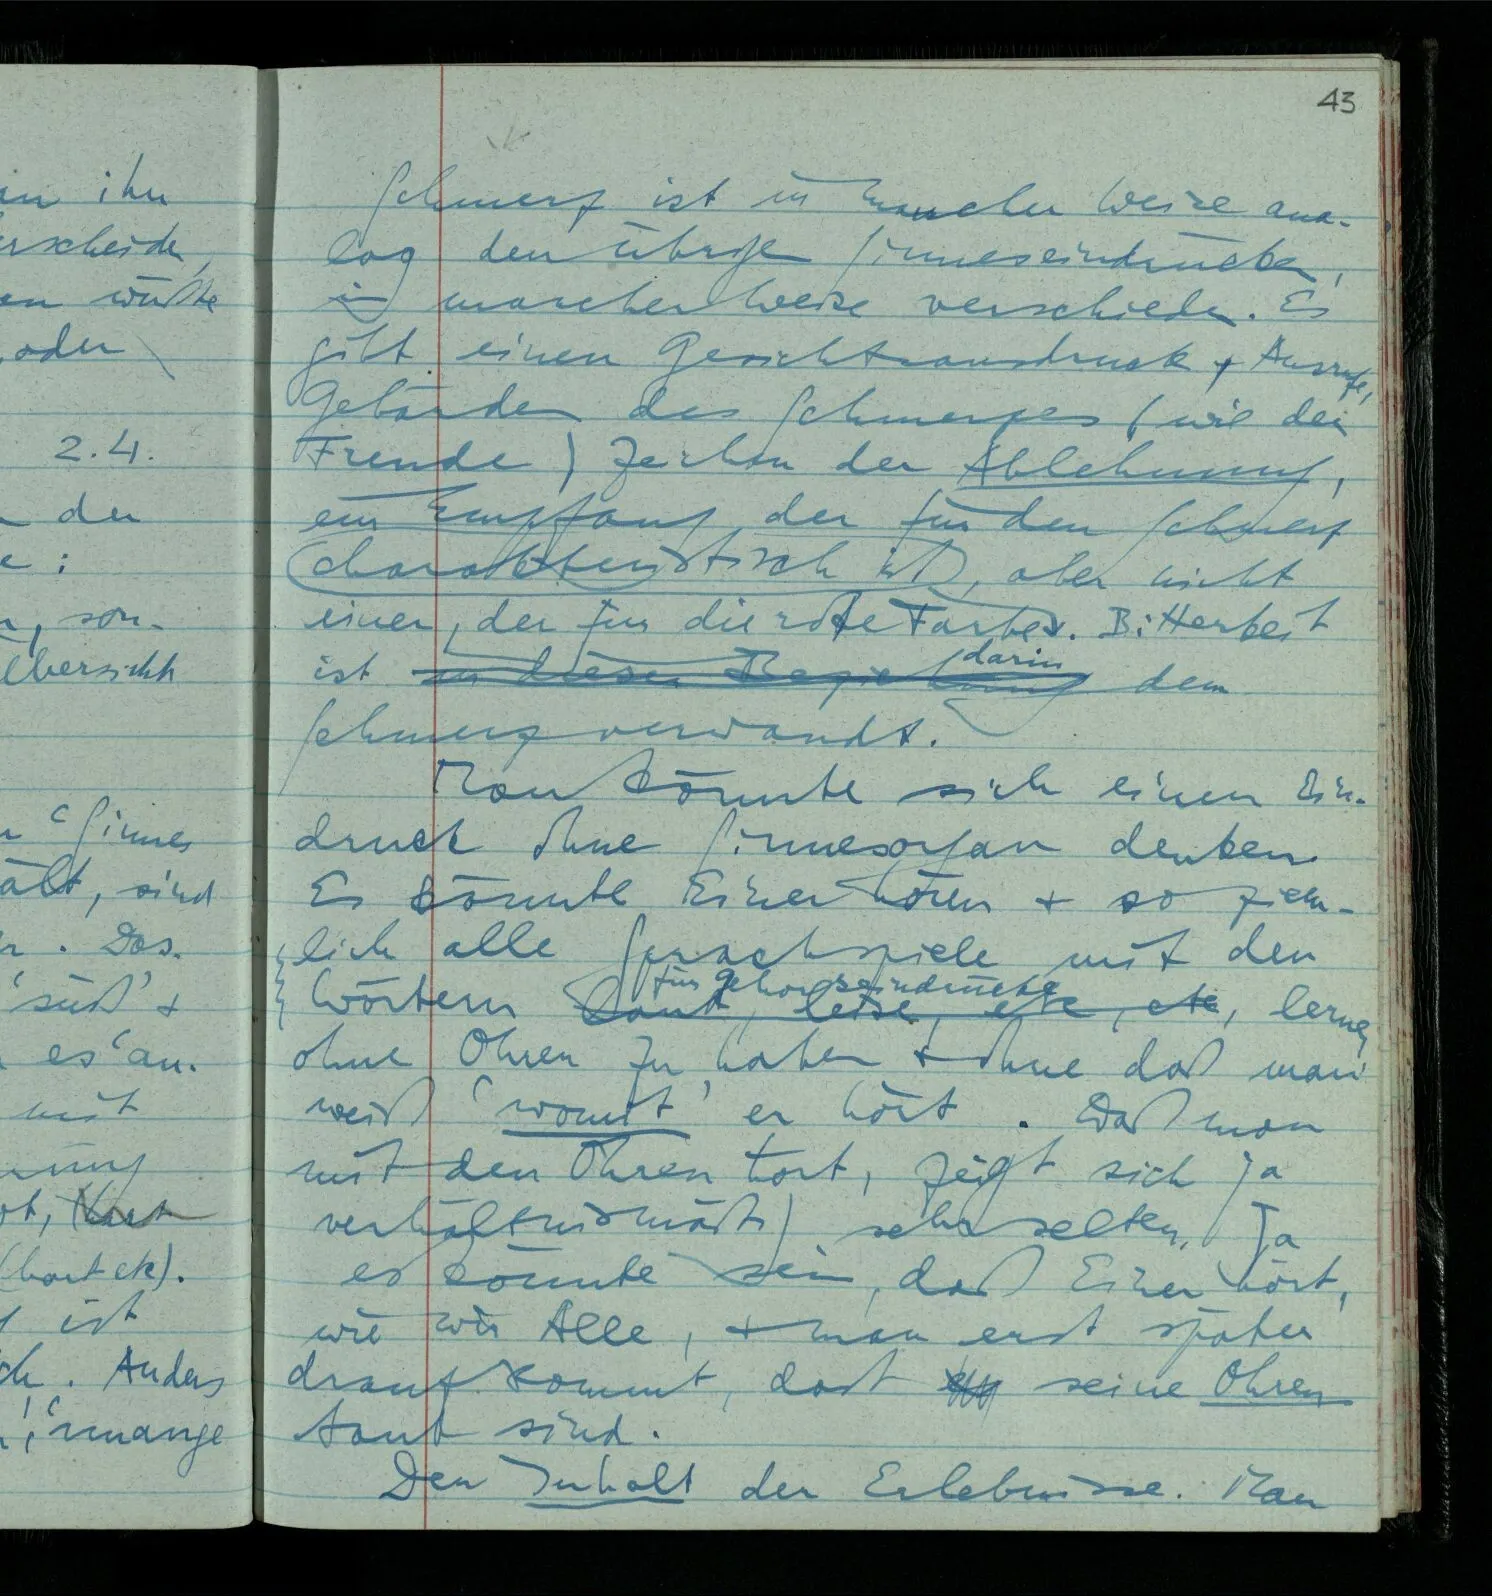 an ihn
erscheiden,
en wüßte
oder
2.4.
der
e:
n, son-
Übersicht
n 'Sinnes
ält, sind
n. Das.
'süß' &
es 'an.
mit
nung
ot,
(hart etc).
ist
ch. Anders
43
Schmerz ist in mancher Weise ana-
log den übrigen Sinneseindrücken,
in mancher Weise verschieden. Es
gibt einen Gesichtsausdruck & Ausrufe,
Gebärden des Schmerzes (wie der
Freude) Zeichen der Ablehnung,
ein Empfang der für den Schmerz
charakteristisch ist, aber nicht
einer, der für die rote Farbe. Bitterkeit
ist in dieser Beziehung darin dem
Schmerz verwandt.
Man könnte sich einen Ein-
druck ohne Sinnesorgan denken.
Es könnte Einer hören & so ziem-
lich alle Sprachspiele mit den
Wörtern laut, leise, etc, etc, für Gehörseindrücke lernen
ohne Ohren zu haben & ohne daß man
weiß 'womit' er hört. Daß man
mit den Ohren hört, zeigt sich ja
verhältnismäßig sehr selten. Ja
es könnte sein, daß Einer hört,
wie wir Alle, & man erst später
drauf kommt, daß seine Ohren
taub sind.
Der Inhalt der Erlebnisse. Man